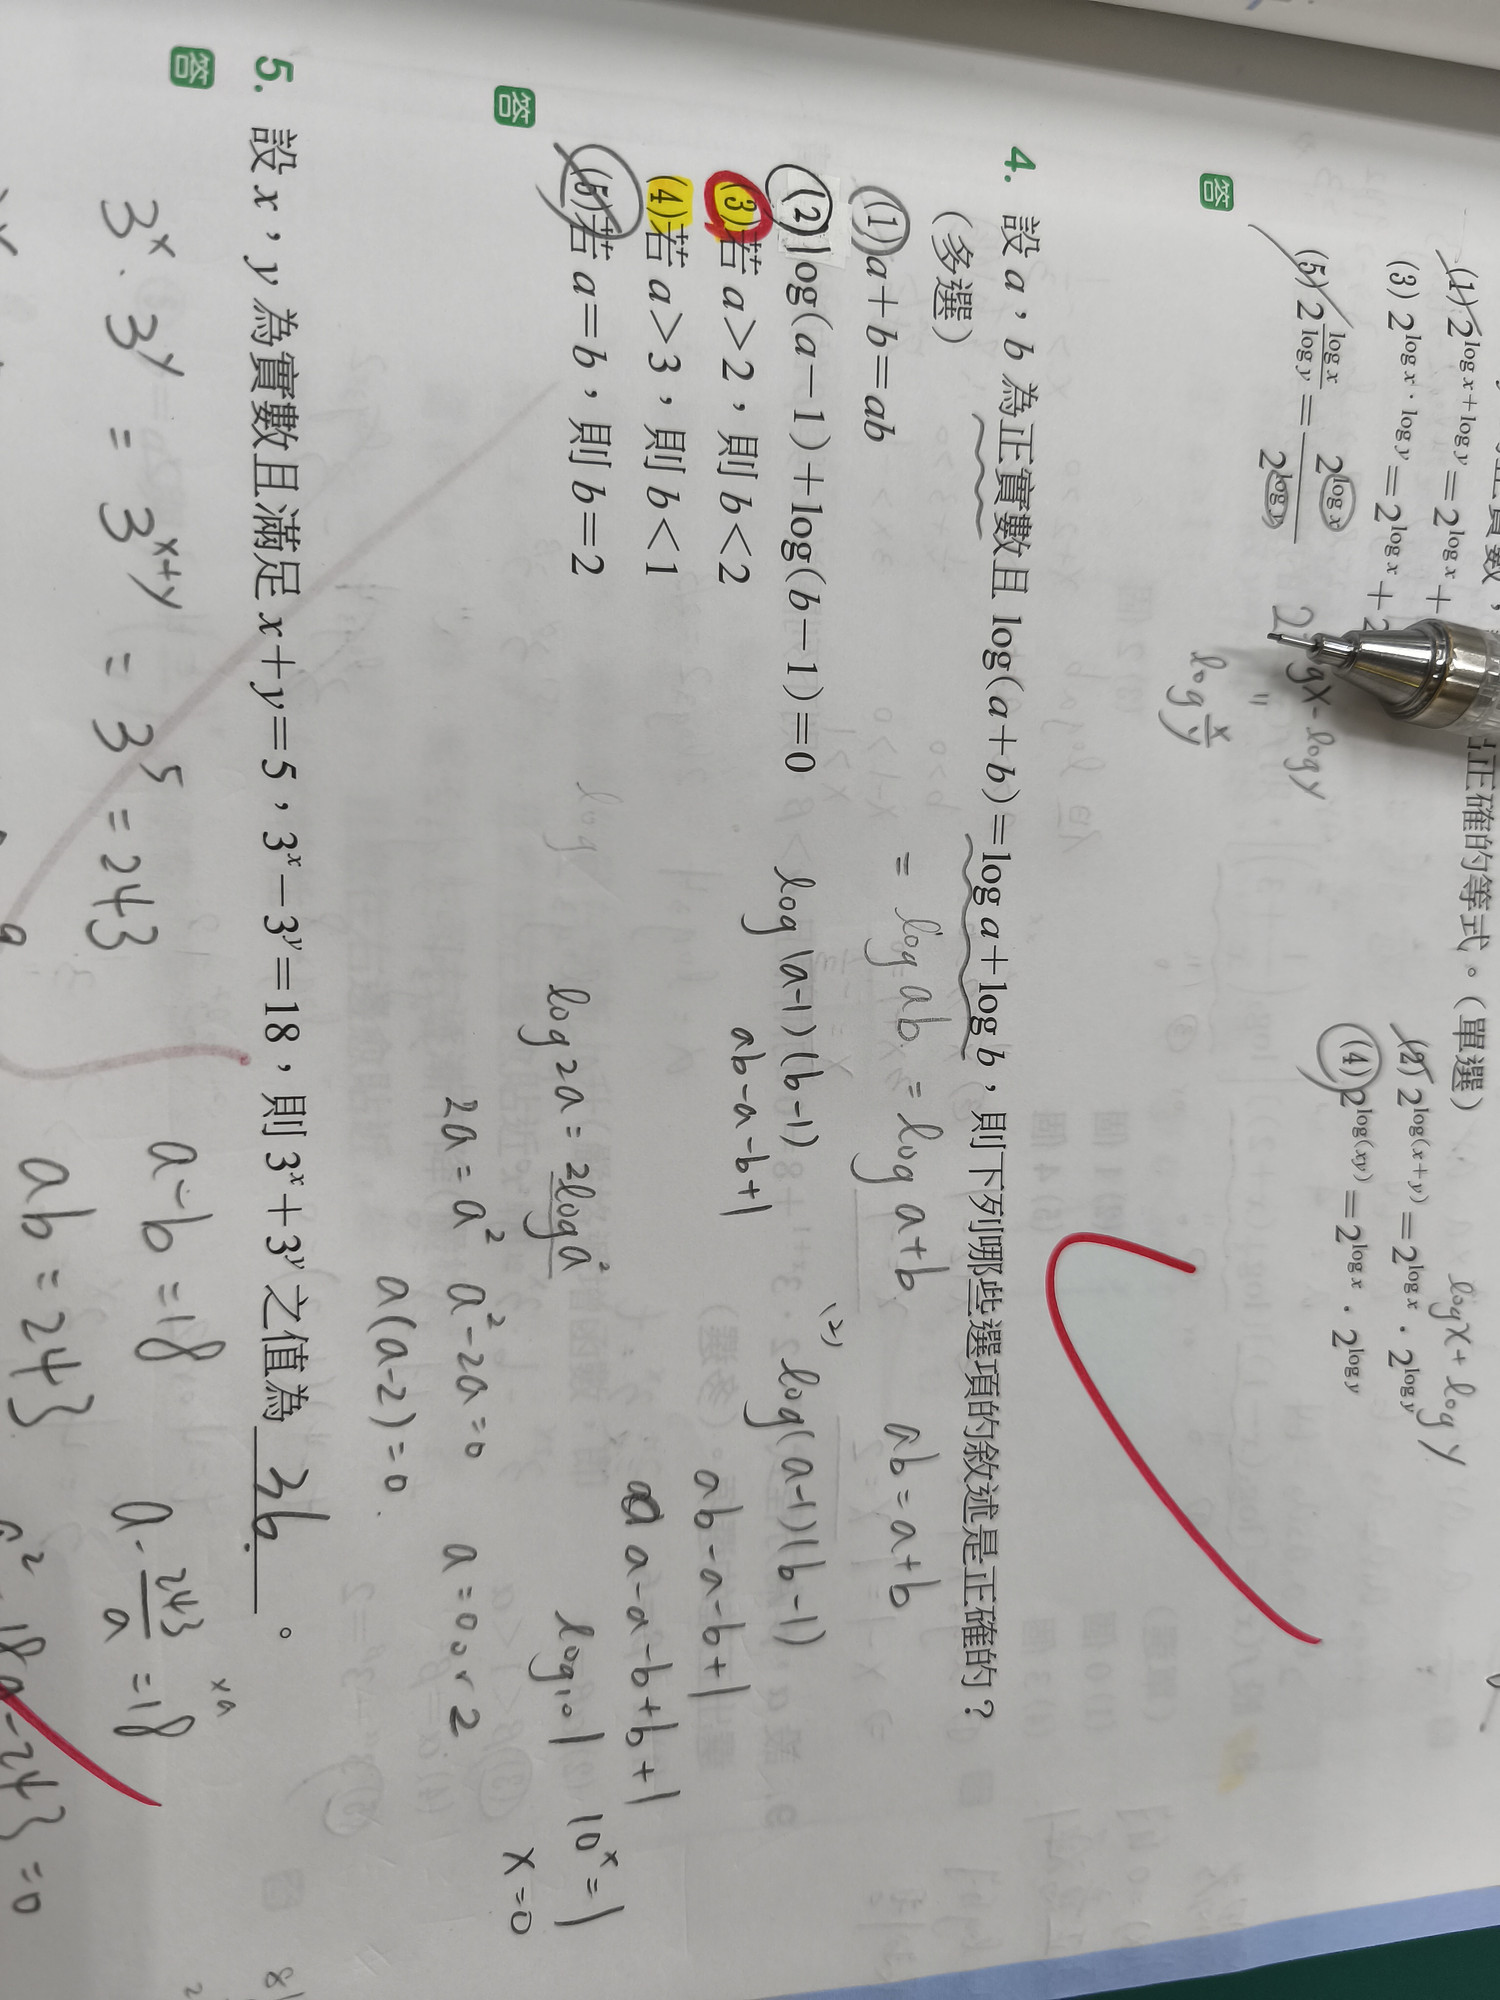 正確的等式。(單選)
(1) 2^{log x+log y}=2^{log x}+
(2) 2^{log(x+y)}=2^{log x}·2^{log y}
log x + log y
(3) 2^{log x·log y}=2^{log x}+2
(4) 2^{log(xy)}=2^{log x}·2^{log y}
(5) 2^{\frac{log x}{log y}}=\frac{2^{log x}}{2^{log y}}
log x - log y
"
log x/y
答
4. 設 a，b 為正實數且 log(a+b)=log a+log b，則下列哪些選項的敘述是正確的？
(多選)
= log ab = log a+b
ab = a+b
(1) a+b=ab
(2) log(a-1)+log(b-1)=0
log(a-1)(b-1)
(2) log(a-1)(b-1)
ab-a-b+1
ab-a-b+1
(3)若 a>2，則 b<2
a-a-b+b+1
(4)若 a>3，則 b<1
(5)若 a=b，則 b=2
log
log 2a = 2log a²
log₁₀1
10^x = 1
x=0
答
2a = a²
a²-2a=0
a=0 or 2
a(a-2)=0
5. 設 x，y 為實數且滿足 x+y=5，3^x-3^y=18，則 3^x+3^y 之值為 36 。
答
3^x · 3^y = 3^{x+y} = 3^5 = 243
a-b=18
a-\frac{243}{a}=18
×a
ab=243
a²-18a-243=0